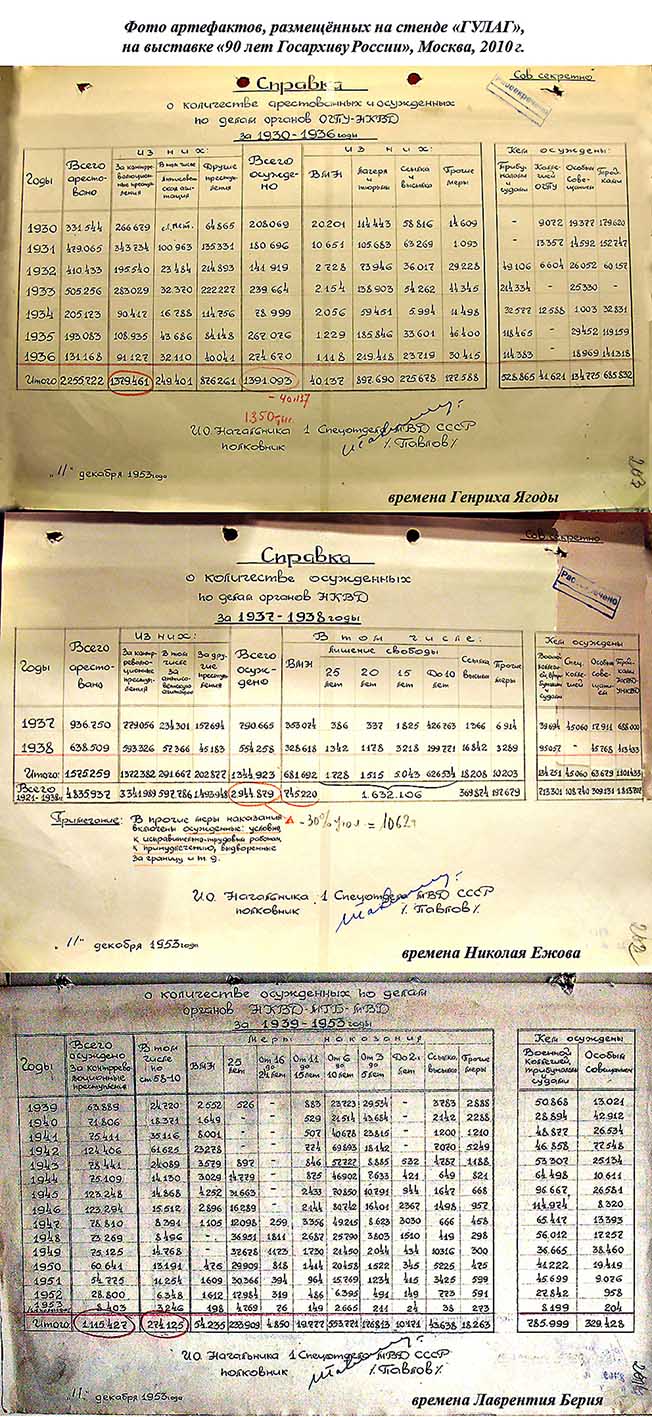 Фото артефактов, размещённых на стенде «ГУЛАГ»,
на выставке «90 лет Госархиву России», Москва, 2010 г.
Сов секретно
Рассекречено
Справка
о количестве арестованных и осужденных
по делам органов ОГПУ-НКВД
за 1930-1936 годы
Годы Всего арестовано Из них: За контрреволюционные преступления В том числе антисоветская агитация Другие преступления Всего осуждено Из них: ВМН Лагеря и тюрьмы Ссылка и высылка Прочие меры Кем осуждены: Трибуналами и судами Коллегией ОГПУ Особым совещанием Тройками
1930 331.544 266.679 64.865 208.069 20.201 114.443 58.816 14.609 - 9072 19.377 179.620
1931 479.065 343.734 100.963 135.331 180.696 10.651 105.683 63.269 1.093 - 13.357 14.592 152.747
1932 410.433 195.540 23.484 214.893 141.919 2.728 73.946 36.017 29.228 49.106 6.604 26.052 60.157
1933 505.256 283.029 32.370 222.227 239.664 2.154 138.903 54.262 44.345 214.334 - 25.330 -
1934 205.173 90.417 16.788 114.756 78.999 2.056 59.451 5.994 11.498 32.577 12.588 1.003 32.831
1935 193.083 108.935 43.686 84.148 267.076 1.229 185.846 33.601 46.400 118.465 29.452 119.159
1936 131.168 91.127 32.110 40.041 274.670 1.118 219.418 23.719 30.415 114.383 18.969 141.318
Итого 2255722 1379461 249.401 876261 1391.093 40.137 897.690 275.678 177.588 528.865 41.621 134.775 685.832
- 40.137
1.350
И.О. Начальника 1 Спецотдела МВД СССР
полковник /Павлов/
„11" декабря 1953 года
203
времена Генриха Ягоды
Сов секретно
Рассекречено
Справка
о количестве осужденных
по делам органов НКВД
за 1937-1938 годы
Годы Всего арестовано Из них: За контрреволюционные преступления В том числе за антисоветскую агитацию За другие преступления Всего осуждено В том числе: ВМН лишение свободы 25 лет 20 лет 15 лет До 10 лет Ссылка высылка Прочие меры Кем осуждены Спец. коллегией Особым совещанием
1937 936.750 779056 234.301 157694 790.665 353074 386 337 1825 426763 1366 6.914 39694 45060 17.911 688.000
1938 638.509 593326 57.366 45183 554.258 328.618 1342 1178 3218 199771 16842 3289 95057 - 45.768 413433
Итого: 1575259 1372382 291.667 202877 1344.923 681692 1.728 1.515 5.043 626534 18208 10203 134.751 45.060 63679 1101433
Всего 1921-1938г. 4.835937 3341989 597.786 1493948 2944.879 745220 1.632.106 369874 197.679 713301 108740
Примечание: В прочие меры наказания
включены осужденные: условно
к исправительно-трудовым работам,
к принудлечению, выдворенные
за границу и т. д.
- 30% угол = 1062
И.О. Начальника 1 Спецотдела МВД СССР
полковник /Павлов/
„11" декабря 1953 года
202
времена Николая Ежова
о количестве осужденных по делам
органов НКВД-МГБ-МВД
за 1939-1953 годы
Годы Всего осуждено за контрреволюционные преступления В том числе по ст.58-10 Меры наказания ВМН 25 лет От 16 до 24 лет От 11 до 15 лет От 6 до 10 лет От 3 до 5 лет До 2х лет Ссылка, высылка Прочие меры Кем осуждены Военной коллегией, трибуналами и судами Особым совещанием
1939 63.889 24.720 2.552 526 - 883 23723 29.534 - 3783 2888 50.868 13.021
1940 71.806 18.371 1.649 - - 529 21.514 43.684 - 2142 2288 28.894 42.912
1941 75.411 35.116 8.001 - - 507 40678 23.815 - 1200 1210 48.877 26.534
1942 124.406 61.625 23278 - - 774 69893 18.142 - 7070 5249 46.858 77.548
1943 78.441 24.089 3.579 897 - 846 57.727 8.885 532 4787 1188 53.307 25.134
1944 75.109 14.130 3029 14779 825 46902 7.633 421 649 821 64.498 10.611
1945 123.248 14.868 4.252 31.663 - 2433 70850 10.791 944 1647 668 96.667 26.581
1946 123.294 15.512 2.896 16289 - 2144 80742 16401 2367 1498 957 114.974 8.320
1947 78.810 8.391 1.105 12098 259 3356 49215 8.623 3030 666 458 65.417 13.393
1948 73.269 8.496 - 36951 1811 2687 25790 3803 1510 419 298 56.012 17.257
1949 75.125 14.768 - 32678 1173 1730 21450 2044 434 10316 300 36.665 38.460
1950 60.641 13.191 475 29909 818 1414 20458 1522 345 5225 475 41.222 19.419
1951 54.775 11.254 1609 30.366 394 964 15.769 1234 415 3425 599 45.699 9.076
1952 28.800 6.348 1612 17984 319 486 6.395 491 149 773 591 27.842 958
1953 8.403 3.246 198 4.769 76 149 2.665 211 24 38 273 8.199 204
Итого: 1.115.427 274.125 54.235 4.850 19.777 553.771 176813 10.171 43.638 18.263 785.999 329.428
И.О. Начальника 1 Спецотдела МВД СССР
полковник /Павлов/
„11" декабря 1953 года
времена Лаврентия Берия